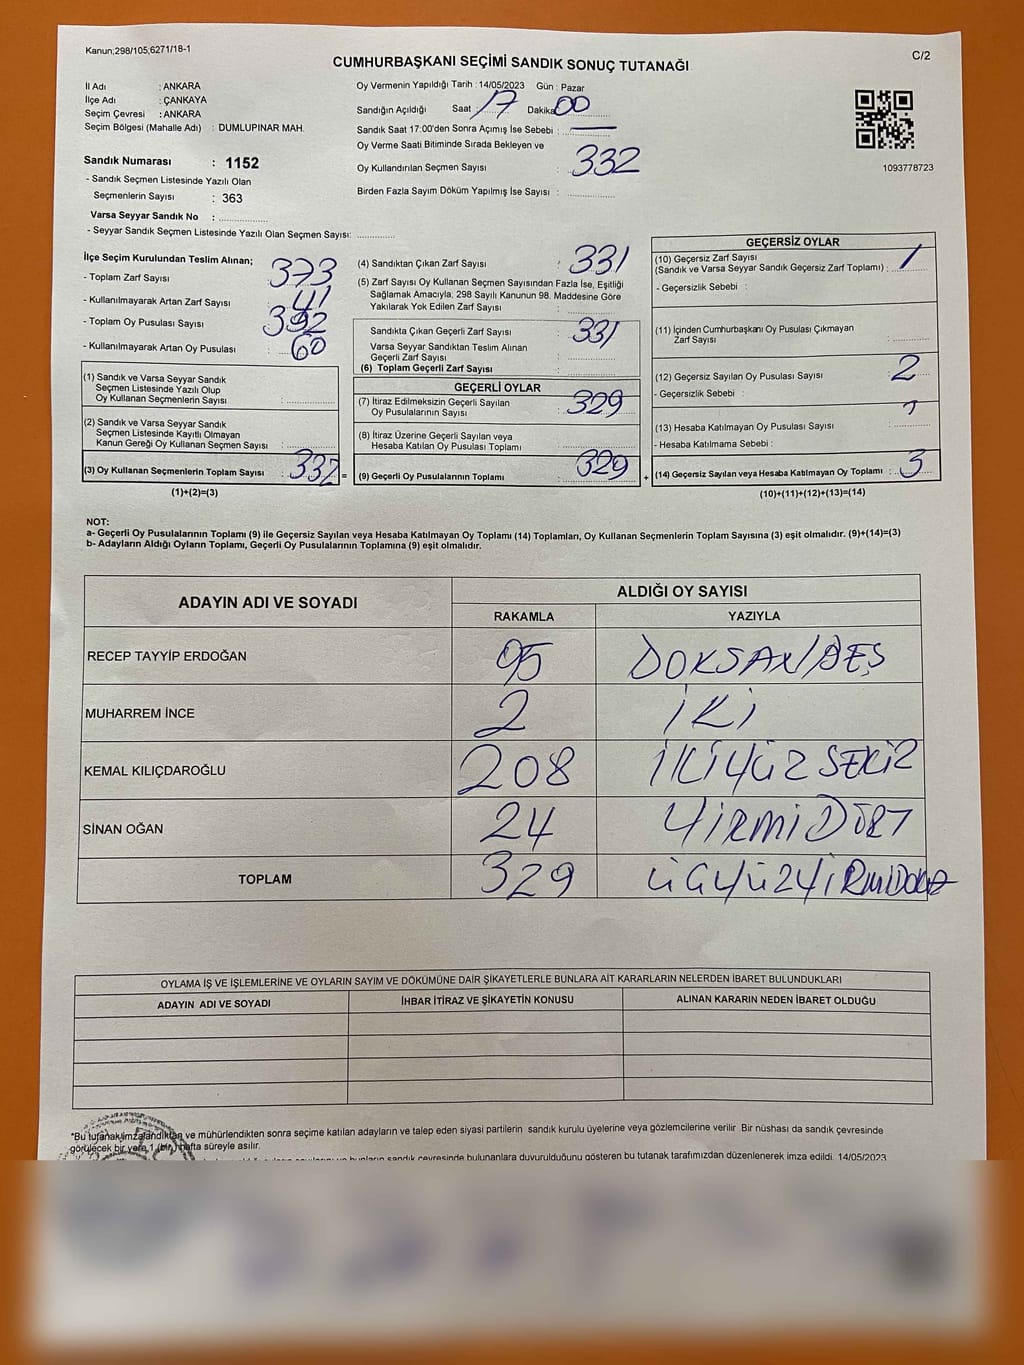 Kanun;298/105,6271/18-1
C/2
CUMHURBAŞKANI SEÇİMİ SANDIK SONUÇ TUTANAĞI
İl Adı : ANKARA
İlçe Adı : ÇANKAYA
Seçim Çevresi : ANKARA
Seçim Bölgesi (Mahalle Adı) : DUMLUPINAR MAH.
Sandık Numarası : 1152
- Sandık Seçmen Listesinde Yazılı Olan
Seçmenlerin Sayısı : 363
Varsa Seyyar Sandık No : ..............
- Seyyar Sandık Seçmen Listesinde Yazılı Olan Seçmen Sayısı: .............
Oy Vermenin Yapıldığı Tarih : 14/05/2023 Gün : Pazar
Sandığın Açıldığı Saat : 17 Dakika 00
Sandık Saat 17:00'den Sonra Açımış İse Sebebi : —
Oy Verme Saati Bitiminde Sırada Bekleyen ve
Oy Kullandırılan Seçmen Sayısı : 332
Birden Fazla Sayım Döküm Yapılmış İse Sayısı : ..............
1093778723
İlçe Seçim Kurulundan Teslim Alınan;
- Toplam Zarf Sayısı : 373
- Kullanılmayarak Artan Zarf Sayısı : 41
- Toplam Oy Pusulası Sayısı : 392
- Kullanılmayarak Artan Oy Pusulası : 60
(1) Sandık ve Varsa Seyyar Sandık
Seçmen Listesinde Yazılı Olup
Oy Kullanan Seçmenlerin Sayısı : ..............
(2) Sandık ve Varsa Seyyar Sandık
Seçmen Listesinde Kayıtlı Olmayan
Kanun Gereği Oy Kullanan Seçmen Sayısı : ..............
(3) Oy Kullanan Seçmenlerin Toplam Sayısı : 332 =
(1)+(2)=(3)
(4) Sandıktan Çıkan Zarf Sayısı : 331
(5) Zarf Sayısı Oy Kullanan Seçmen Sayısından Fazla İse, Eşitliği
Sağlamak Amacıyla, 298 Sayılı Kanunun 98. Maddesine Göre
Yakılarak Yok Edilen Zarf Sayısı : ..............
Sandıkta Çıkan Geçerli Zarf Sayısı : 331
Varsa Seyyar Sandıktan Teslim Alınan
Geçerli Zarf Sayısı : ..............
(6) Toplam Geçerli Zarf Sayısı : ..............
GEÇERLİ OYLAR
(7) İtiraz Edilmeksizin Geçerli Sayılan
Oy Pusulalarının Sayısı : 329
(8) İtiraz Üzerine Geçerli Sayılan veya
Hesaba Katılan Oy Pusulası Toplamı : ..............
(9) Geçerli Oy Pusulalarının Toplamı : 329 +
GEÇERSİZ OYLAR
(10) Geçersiz Zarf Sayısı
(Sandık ve Varsa Seyyar Sandık Geçersiz Zarf Toplamı) : 1
- Geçersizlik Sebebi :
(11) İçinden Cumhurbaşkanı Oy Pusulası Çıkmayan
Zarf Sayısı : ..............
(12) Geçersiz Sayılan Oy Pusulası Sayısı : 2
- Geçersizlik Sebebi :
(13) Hesaba Katılmayan Oy Pusulası Sayısı : ..............
- Hesaba Katılmama Sebebi :
(14) Geçersiz Sayılan veya Hesaba Katılmayan Oy Toplamı : 3
(10)+(11)+(12)+(13)=(14)
NOT:
a- Geçerli Oy Pusulalarının Toplamı (9) ile Geçersiz Sayılan veya Hesaba Katılmayan Oy Toplamı (14) Toplamları, Oy Kullanan Seçmenlerin Toplam Sayısına (3) eşit olmalıdır. (9)+(14)=(3)
b- Adayların Aldığı Oyların Toplamı, Geçerli Oy Pusulalarının Toplamına (9) eşit olmalıdır.
ADAYIN ADI VE SOYADI ALDIĞI OY SAYISI
RAKAMLA YAZIYLA
RECEP TAYYİP ERDOĞAN 95 DOKSAN/BEŞ
MUHARREM İNCE 2 İKİ
KEMAL KILIÇDAROĞLU 208 İKİYÜZ SEKİZ
SİNAN OĞAN 24 YİRMİ DÖRT
TOPLAM 329 ÜÇYÜZYİRMİDOKUZ
OYLAMA İŞ VE İŞLEMLERİNE VE OYLARIN SAYIM VE DÖKÜMÜNE DAİR ŞİKAYETLERLE BUNLARA AİT KARARLARIN NELERDEN İBARET BULUNDUKLARI
ADAYIN ADI VE SOYADI İHBAR İTİRAZ VE ŞİKAYETİN KONUSU ALINAN KARARIN NEDEN İBARET OLDUĞU
*Bu tutanak imzalandıktan ve mühürlendikten sonra seçime katılan adayların ve talep eden siyasi partilerin sandık kurulu üyelerine veya gözlemcilerine verilir. Bir nüshası da sandık çevresinde
görülecek bir yere 1 (bir) hafta süreyle asılır.
sandık çevresinde bulunanlara duyurulduğunu gösteren bu tutanak tarafımızdan düzenlenerek imza edildi. 14/05/2023